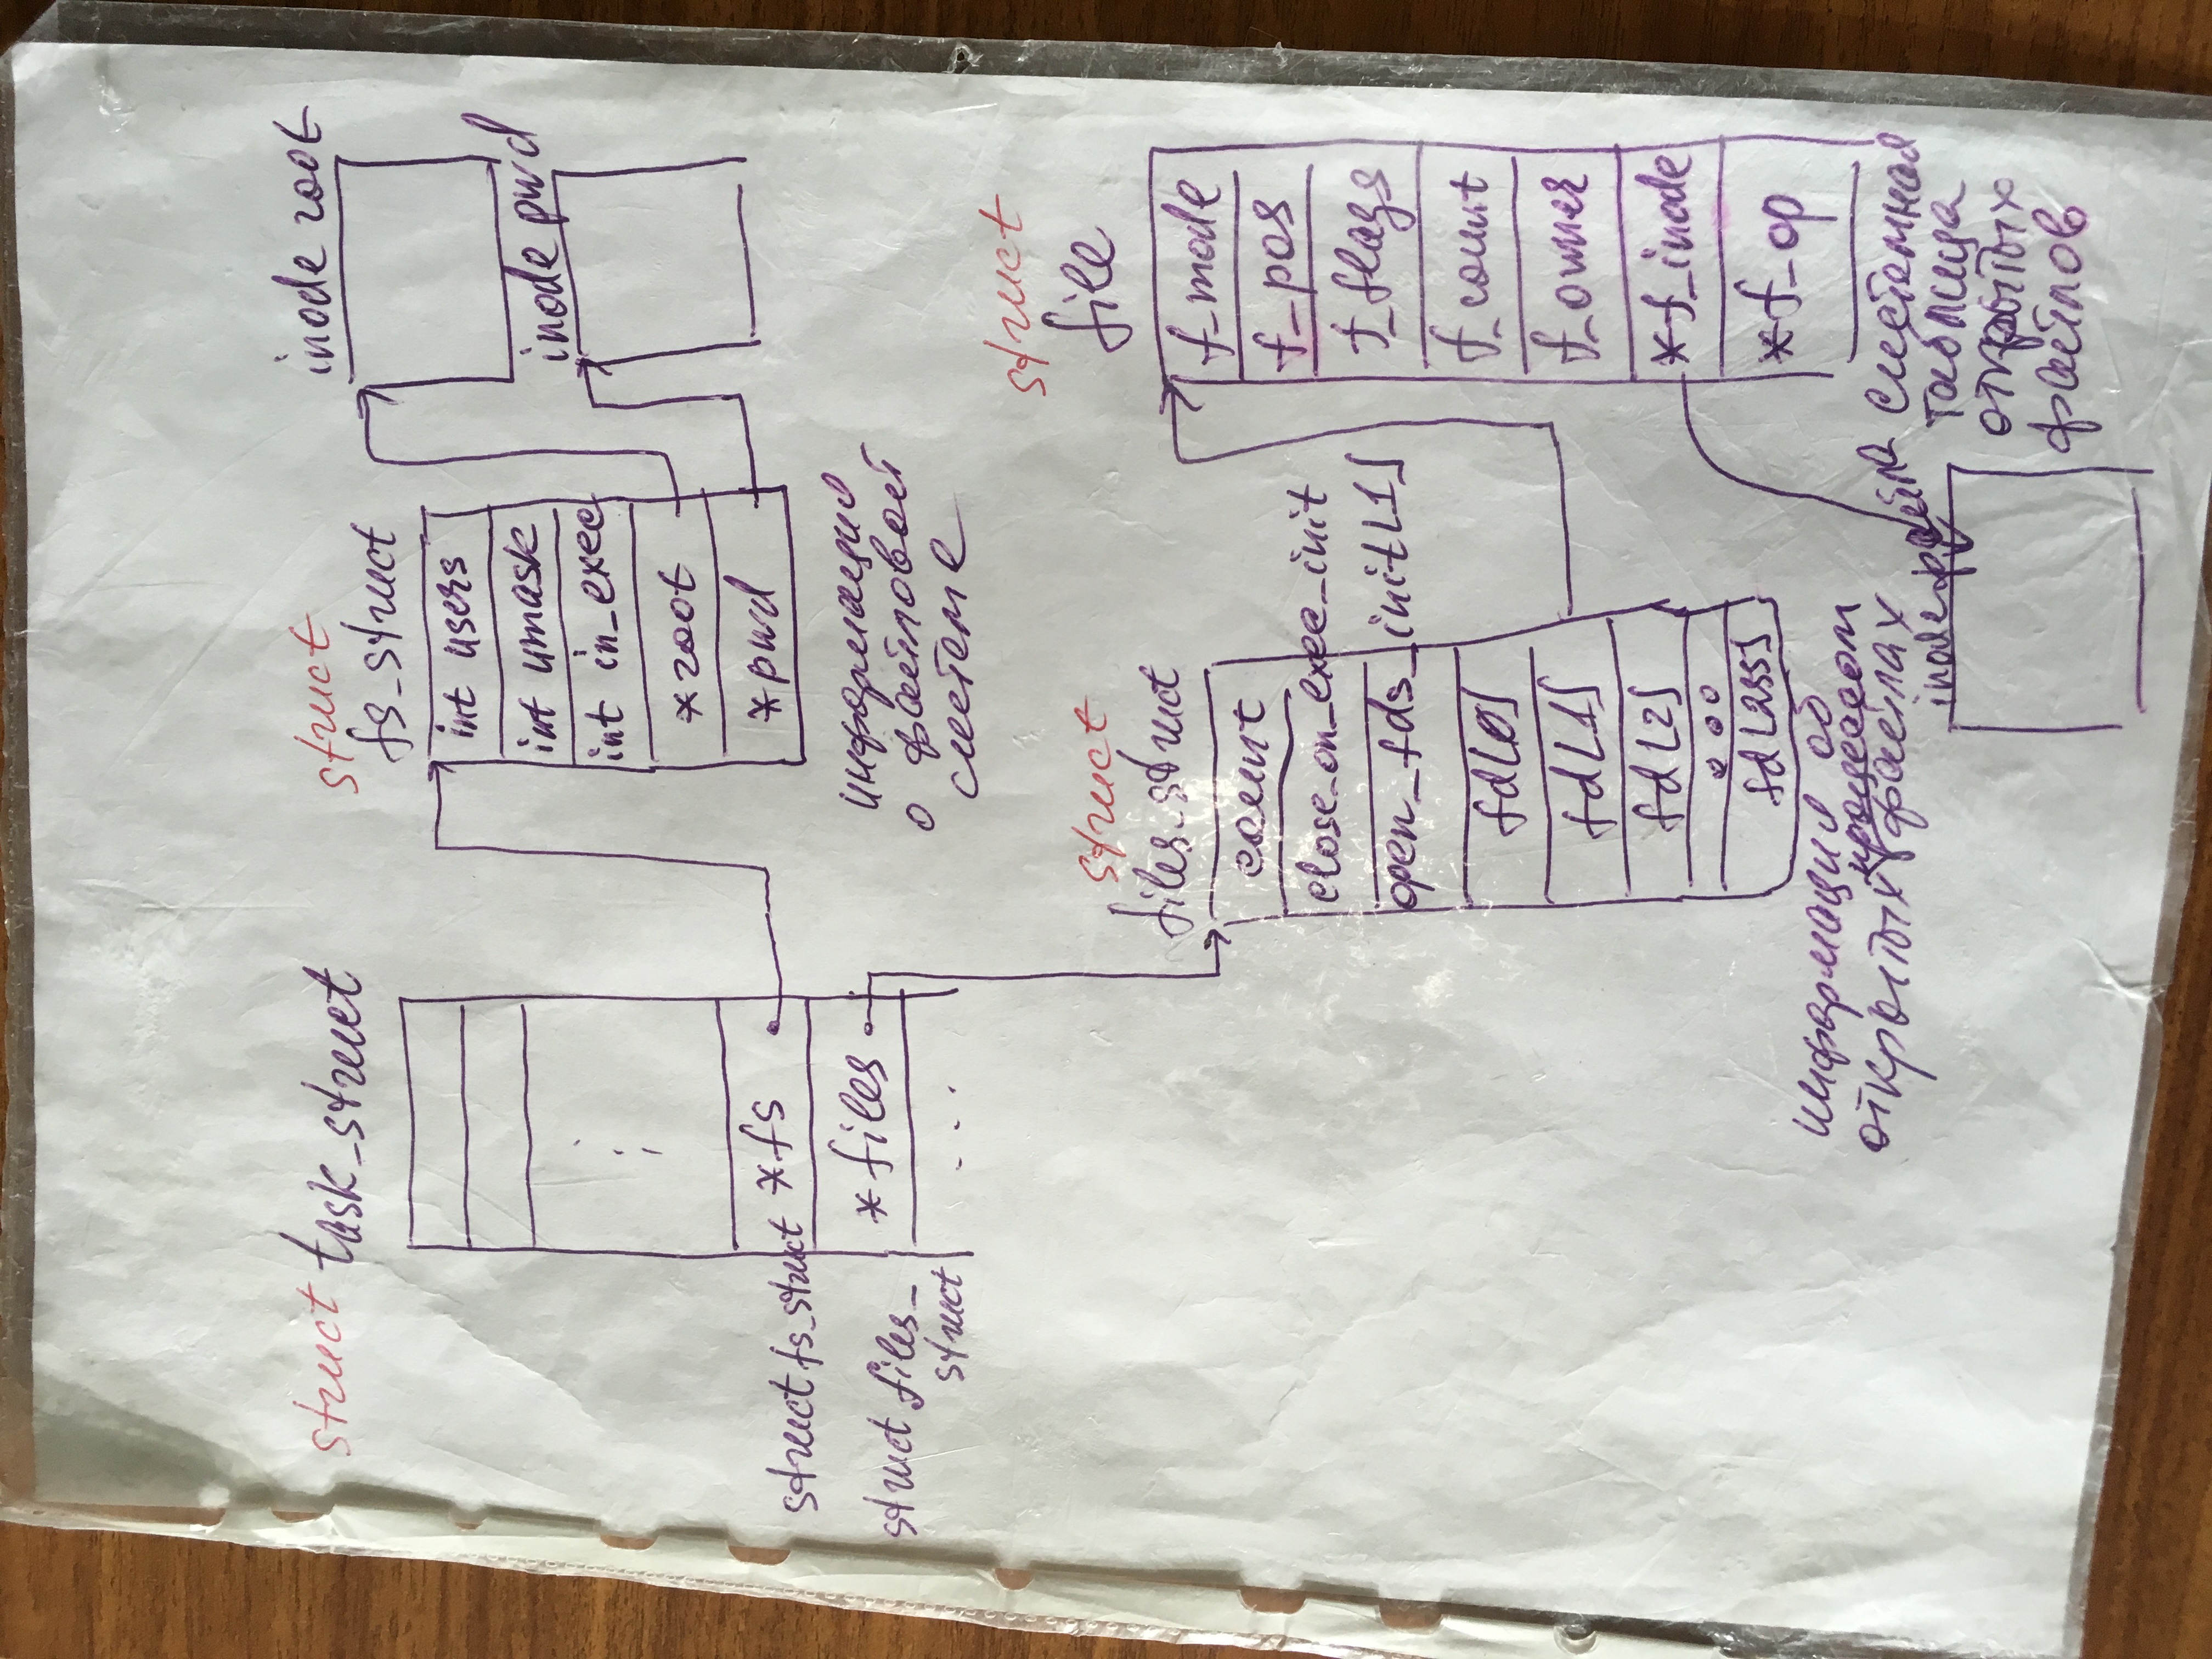 struct task_struct
struct fs_struct *fs
struct files_
struct
*files
struct
fs_struct
int users
int umask
int in_exec
*root
*pwd
информация
о файловой
системе
inode root
inode pwd
struct
files_struct
count
close_on_exec_init
open_fds_init[1]
fd[0]
fd[1]
fd[2]
fd[255]
информация об
открытых процессом
файлах
struct
file
f_mode
f_pos
f_flags
f_count
f_owner
*f_inode
*f_op
системная
таблица
открытых
файлов
inode файла